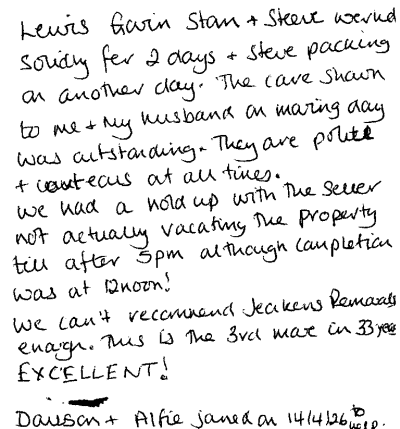 Lewis Gavin Stan + Steve worked
solidly for 2 days + Steve packing
on another day. The care shown
to me + my husband on moving day
was outstanding. They are polite
+ courteous at all times.
We had a hold up with the seller
not actually vacating the property
till after 5pm although completion
was at 12noon!
We can't recommend Jeakens Removals
enough. This is the 3rd move in 33 years
EXCELLENT!
Dawson + Alfie joined on 14/4/26 to
help.